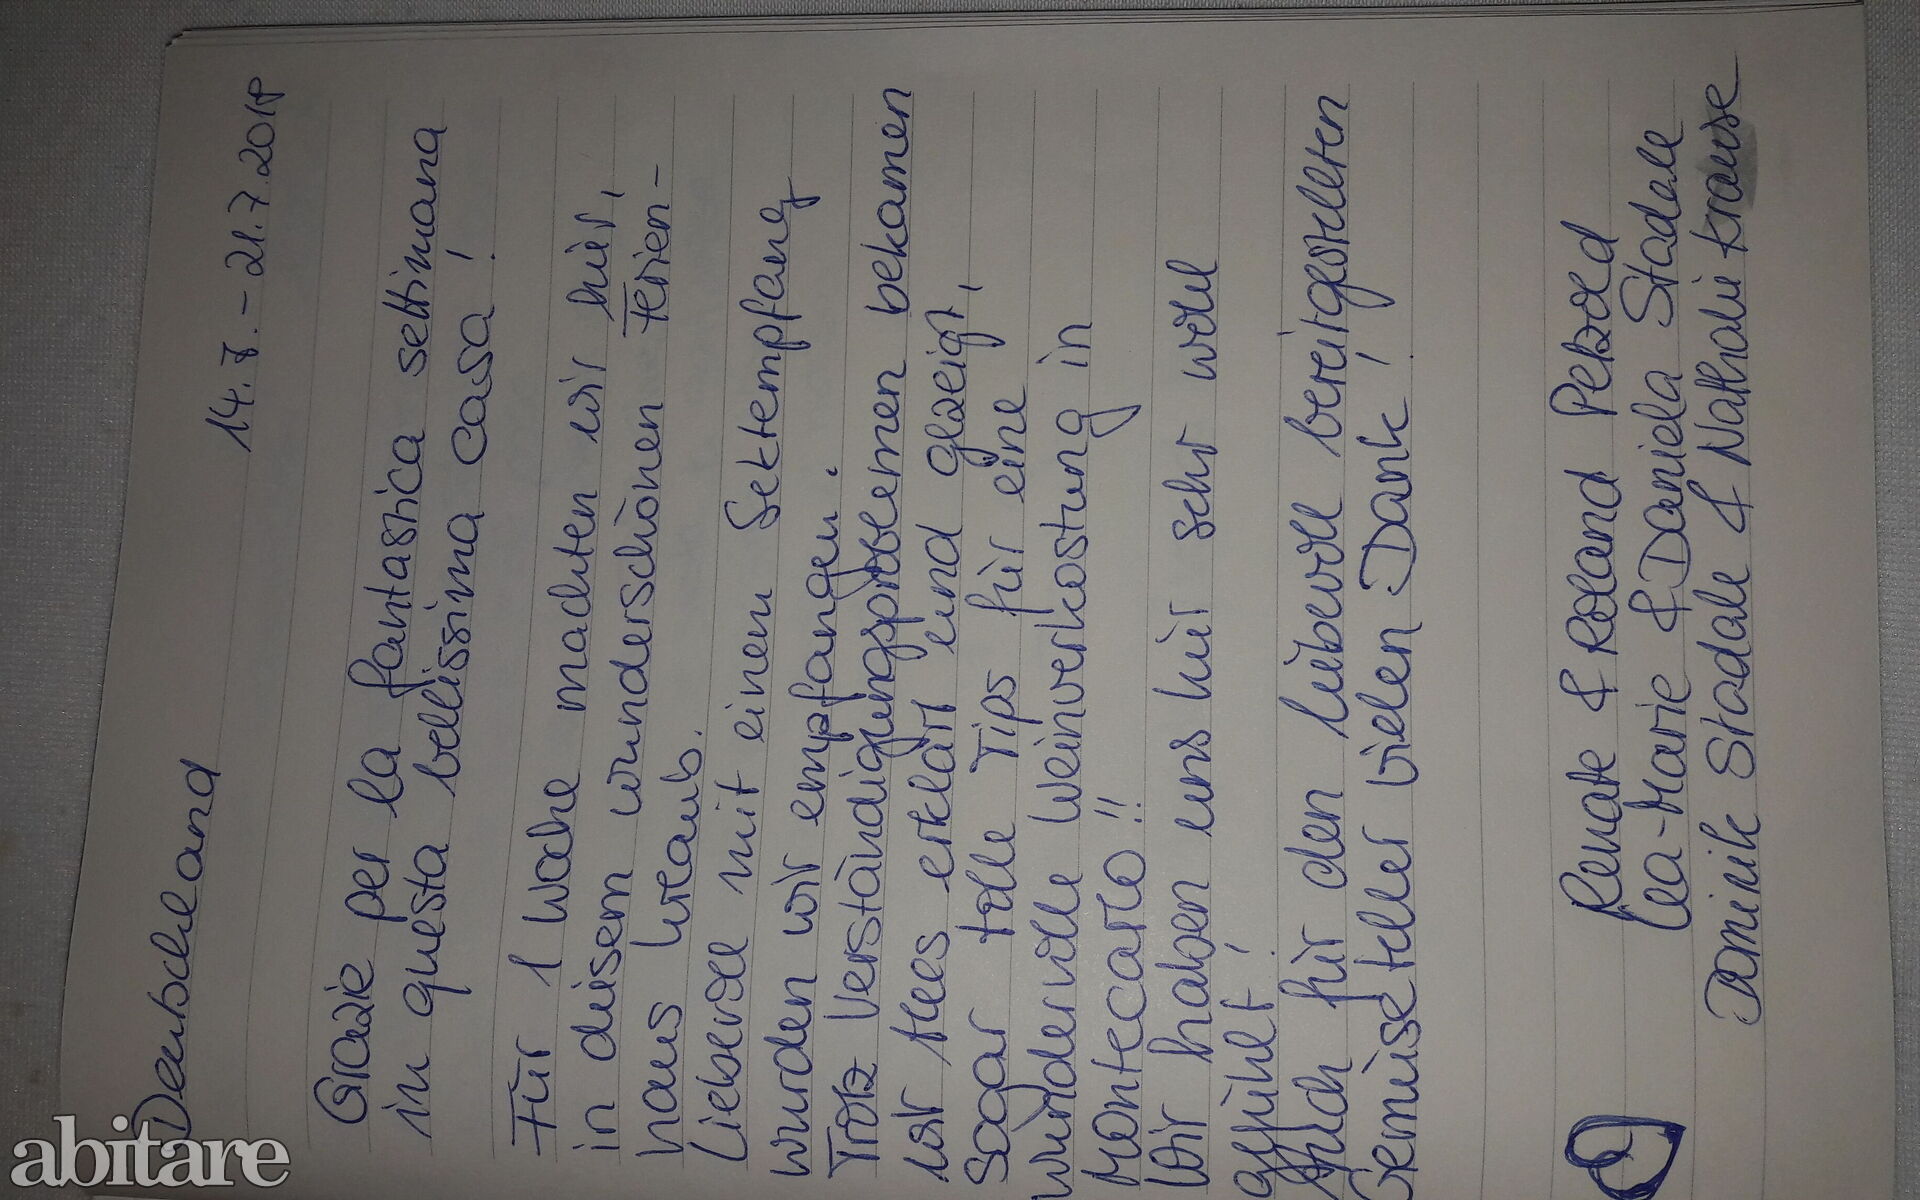 Deutschland
14.7. - 21.7.2018
Grazie per la fantastica settimana
in questa bellissima casa!
Für 1 Woche machten wir hier,
in diesem wunderschönen Ferien-
haus Urlaub.
Liebevoll mit einem Sektempfang
wurden wir empfangen.
Trotz Verständigungsproblemen bekamen
wir alles erklärt und gezeigt,
sogar tolle Tips für eine
wundervolle Weinverkostung in
Montecarlo!!
Wir haben uns hier sehr wohl
gefühlt!
Auch für den liebevoll bereitgestellten
Gemüseteller vielen Dank!
Renate & Roland Petzold
Lea-Marie & Daniela Stadale
Dominik Stadale & Nathalie Krause
abitare